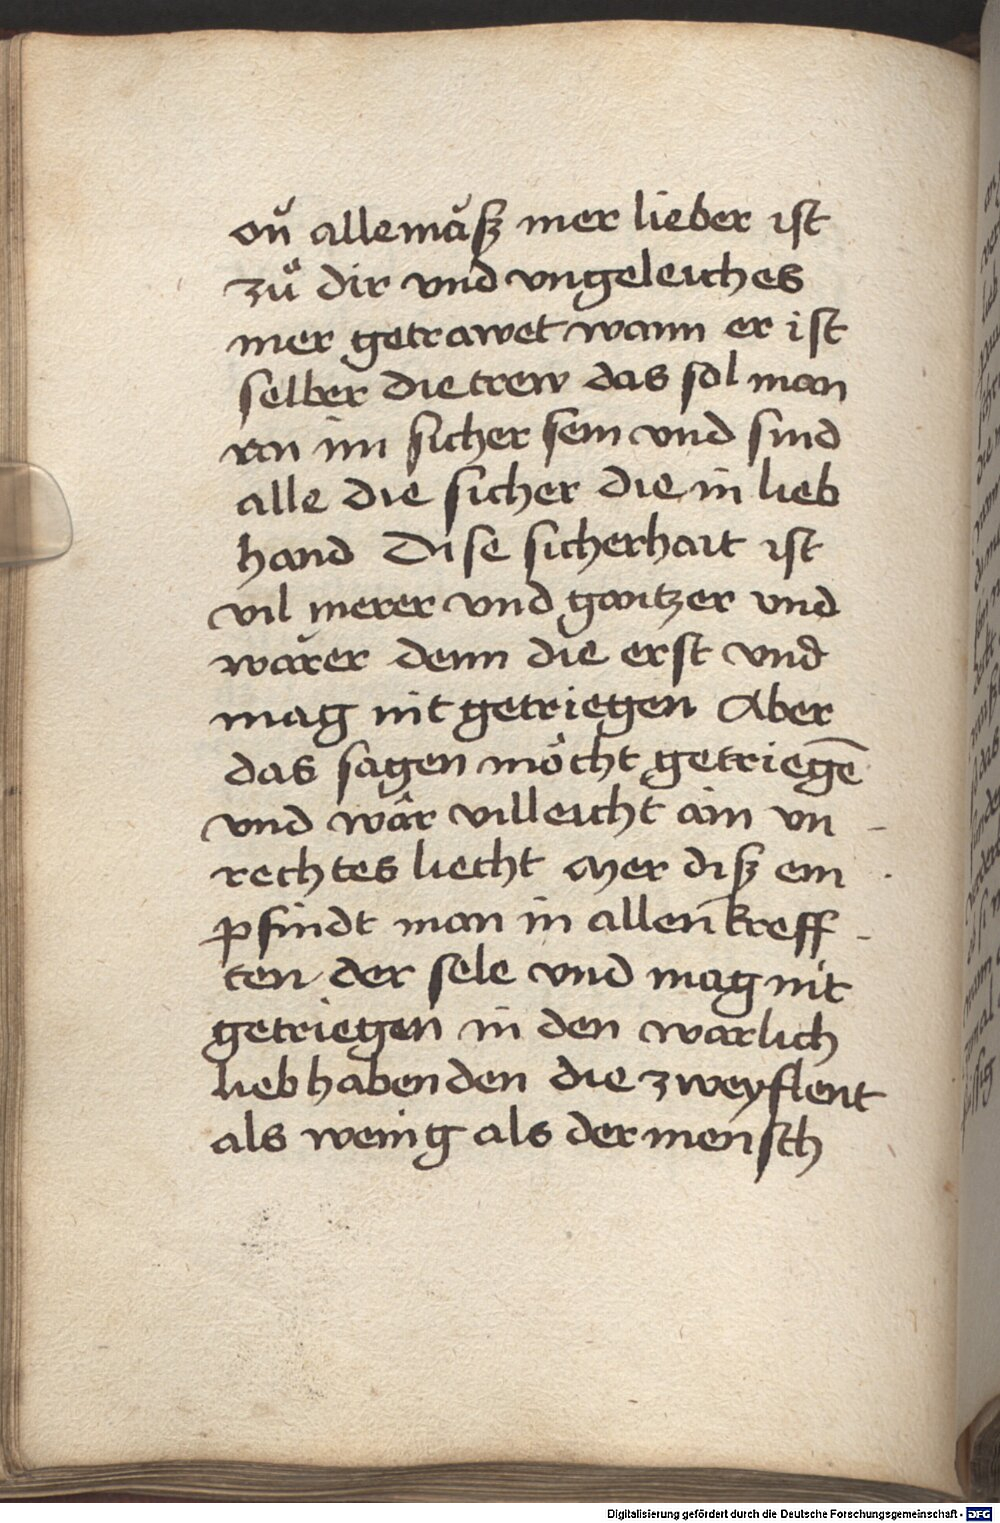 on̆ alle mǎß mer lieber ist
zů dir vnd vngeleiches
mer getrawet wann er ist
selber die trew das sol man
von im sicher sein vnd sind
alle die sicher die in lieb
hand Dise sicherhait ist
vil merer vnd gantzer vnd
wärer denn die erst vnd
mag nit getriegen Aber
das sagen möcht getriegē
vnd wâr villeicht ain vn-
rechtes liecht Mer diß em
pfindt man in allen kreff-
ten der sele vnd mag nit
getriegen in den warlich
liebhabenden die zweyflent
als wenig als der mensch
Digitalisierung gefördert durch die Deutsche Forschungsgemeinschaft - DFG